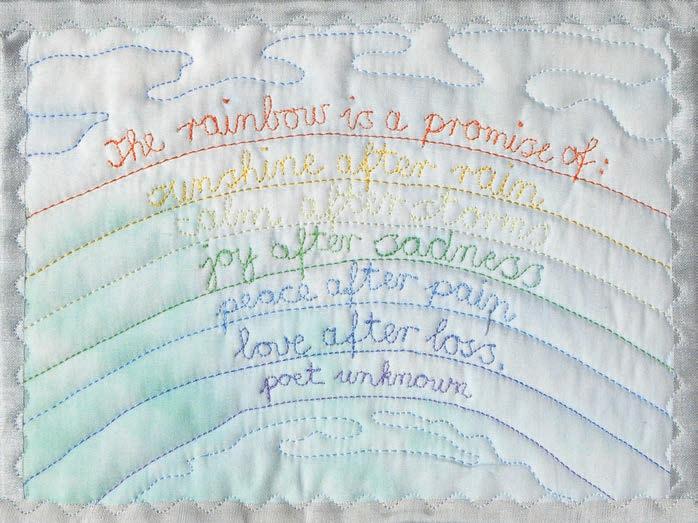 The rainbow is a promise of:
sunshine after rain
calm after storms
joy after sadness
peace after pain
love after loss.
poet unknown